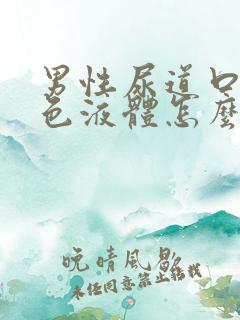 男性尿道口
色液體怎麼
晚晴風歇
未经同意禁止转载